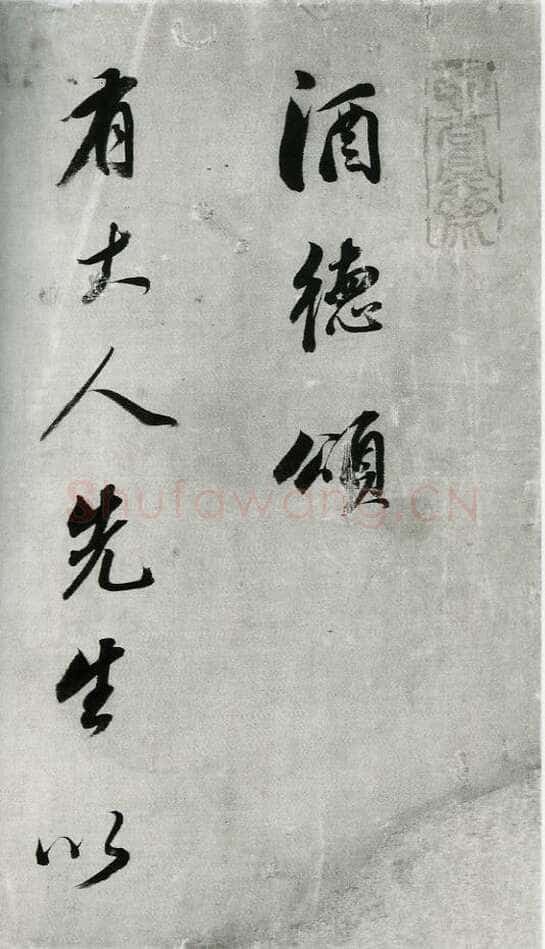 酒德頌
有大人先生以
Shufawang.CN